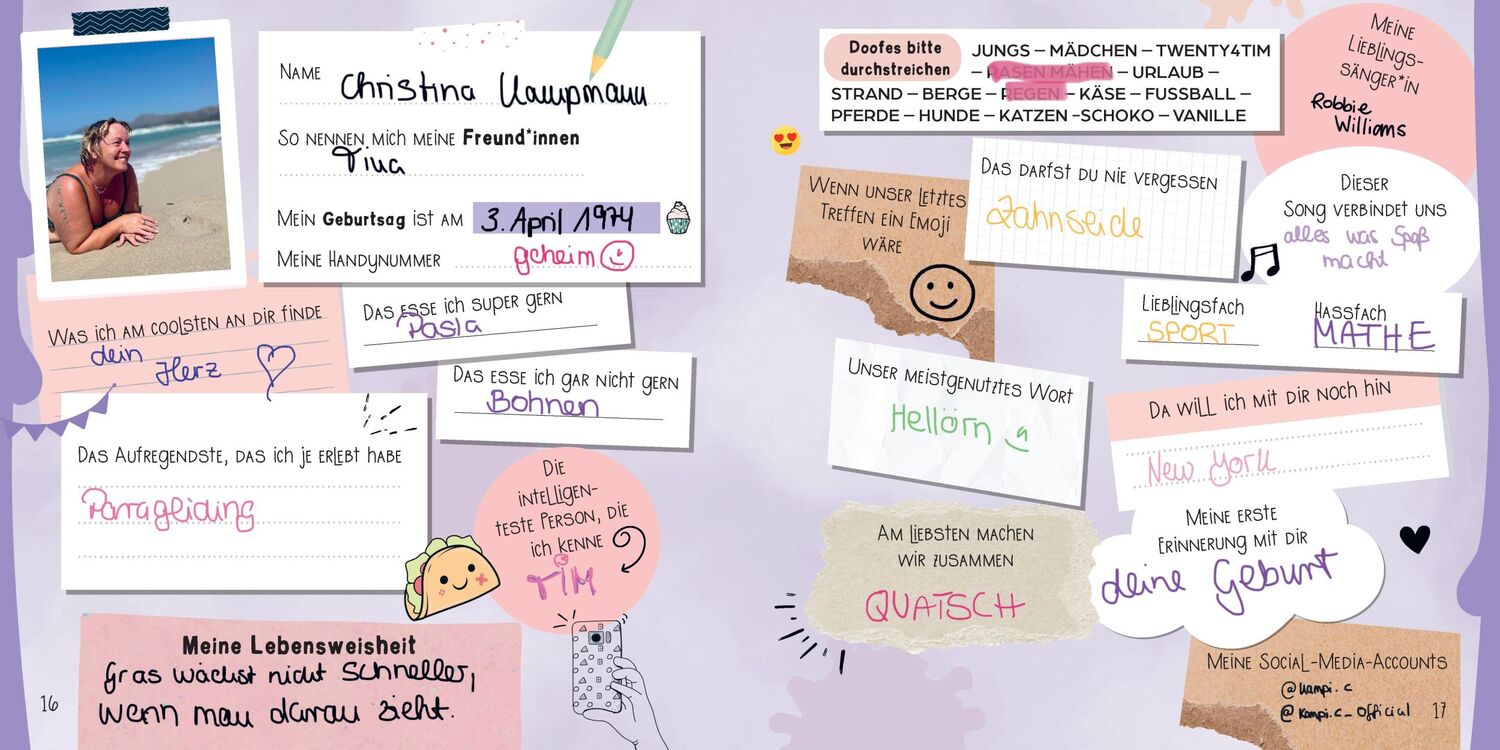 NAME Christina Kampmann
SO NENNEN MICH MEINE Freund*innen
Tina
MEIN Geburtsag IST AM 3. April 1974
MEINE HANDYNUMMER geheim
WAS ICH AM COOLSTEN AN DIR FINDE
dein
Herz
DAS ESSE ICH SUPER GERN
Pasta
DAS ESSE ICH GAR NICHT GERN
Bohnen
DAS AUFREGENDSTE, DAS ICH JE ERLEBT HABE
Parragleiding
DIE
INTELLIGEN-
TESTE PERSON, DIE
ICH KENNE
TIM
Meine Lebensweisheit
Gras wächst nicht schneller,
wenn man daran zieht.
16
Doofes bitte
durchstreichen
JUNGS – MÄDCHEN – TWENTY4TIM
– RASEN MÄHEN – URLAUB –
STRAND – BERGE – REGEN – KÄSE – FUSSBALL –
PFERDE – HUNDE – KATZEN –SCHOKO – VANILLE
MEINE
LIEBLINGS-
SÄNGER*IN
Robbie
Williams
WENN UNSER LETZTES
TREFFEN EIN EMOJI
WÄRE
DAS DARFST DU NIE VERGESSEN
Zahnseide
DIESER
SONG VERBINDET UNS
alles was Spaß
macht
LIEBLINGSFACH
SPORT
HASSFACH
MATHE
UNSER MEISTGENUTZTES WORT
Hellörn
DA WILL ICH MIT DIR NOCH HIN
New York
AM LIEBSTEN MACHEN
WIR ZUSAMMEN
QUATSCH
MEINE ERSTE
ERINNERUNG MIT DIR
deine Geburt
MEINE SOCIAL-MEDIA-ACCOUNTS
@kampi.c
@kampi.c_official
17